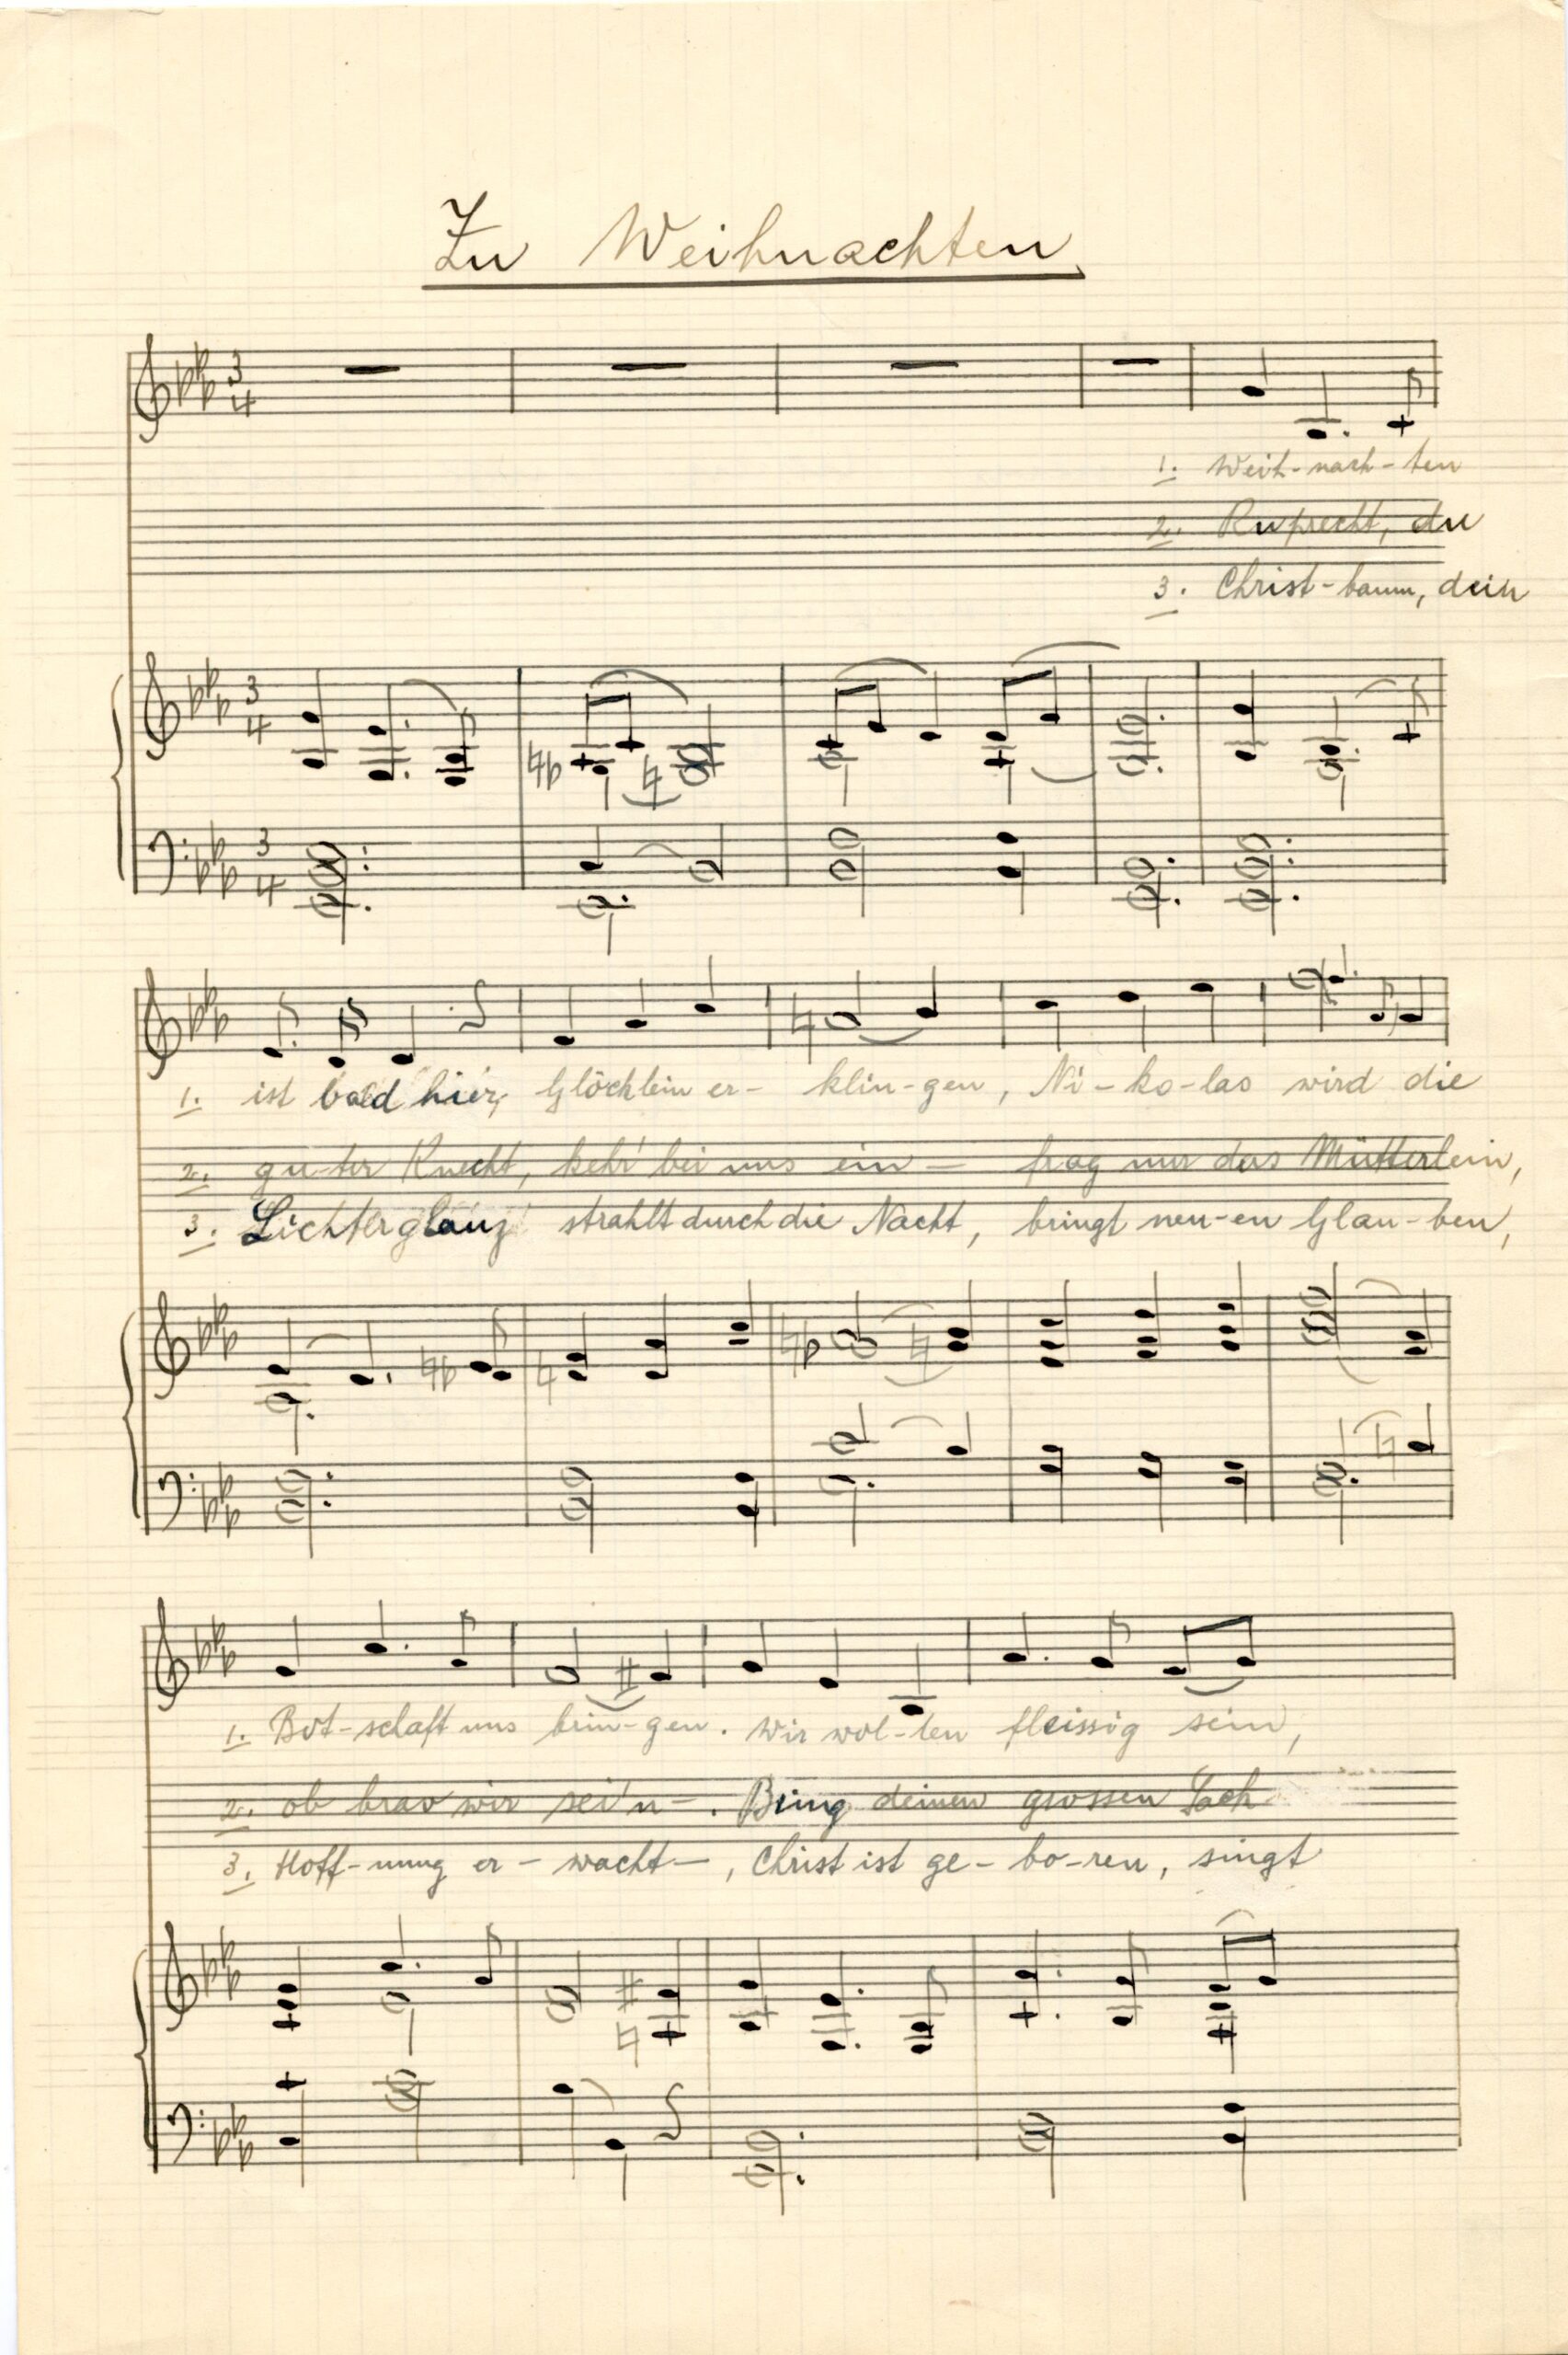 Zu Weihnachten
3
4
1. Weih-nach-ten
2. Ruprecht, du
3. Christ-baum, dein
3
4
3
4
1. ist bald hier, Glöcklein er- klin-gen, Ni-ko-las wird die
2. gu-ter Knecht, kehr' bei uns ein- frag nur das Mütterlein,
3. Lichterglanz strahlt durch die Nacht, bringt neu-en Glau-ben,
1. Bot-schaft uns brin-gen. Wir wol-len fleissig sein,
2. ob brav wir sei'n-. Bring deinen grossen Sack
3. Hoff-nung er-wacht-, Christ ist ge-bo-ren, singt